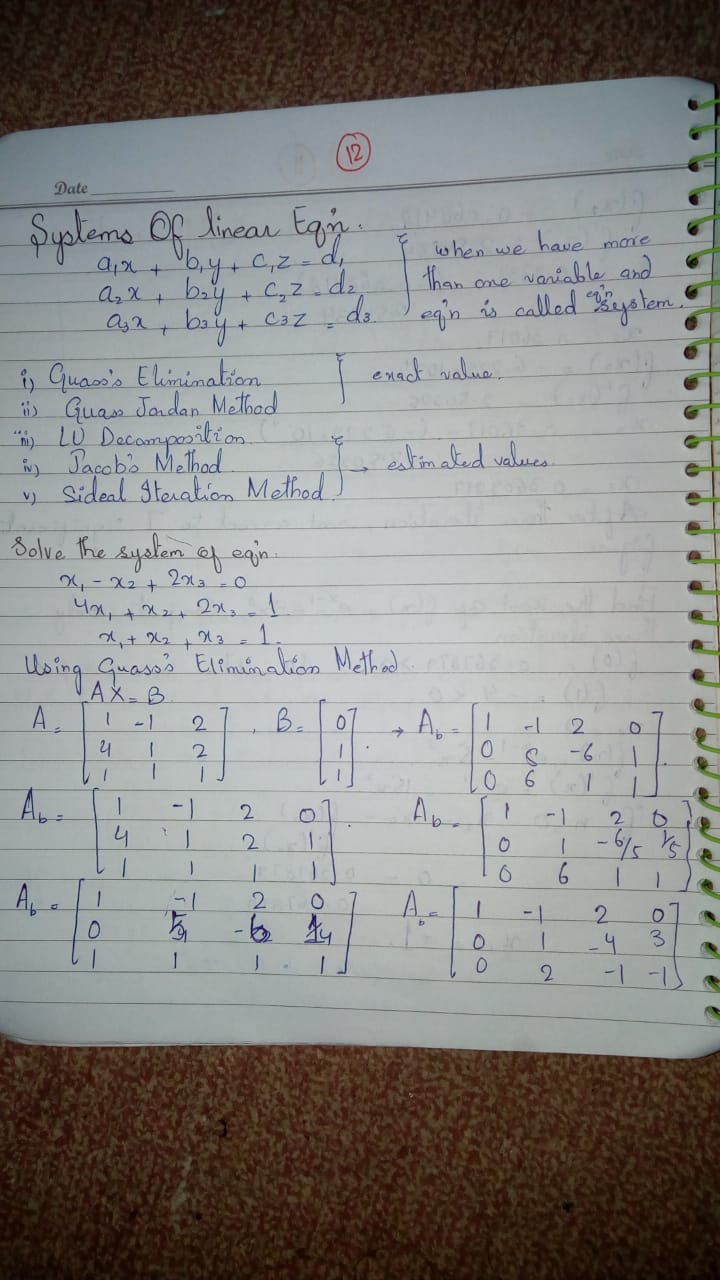 12
Date
Systems Of linear Eq'n.
a₁x + b₁y + c₁z = d₁
a₂x + b₂y + c₂z = d₂
a₃x + b₃y + c₃z = d₃.
when we have more
than one variable and
eq'n is called eq'n system.
i) Guass's Elimination
ii) Guass Jordan Method
iii) LU Decomposition.
exact value.
iv) Jacob's Method
v) Sideal Iteration Method
→ estimated values
Solve the system of eq'n.
x₁ - x₂ + 2x₃ = 0
4x₁ + x₂ + 2x₃ = 1
x₁ + x₂ + x₃ = 1.
Using Guass's Elimination Method.
AX = B
A = [1 -1 2
4 1 2
1 1 1]
, B = [0
1
1].
→ Ab = [1 -1 2 0
0 5 -6 1
0 6 1 1].
Ab = [1 -1 2 0
4 1 2 1
1 1 1 1].
Ab = [1 -1 2 0
0 1 -6/5 1/5
0 6 1 1]
Ab = [1 -1 2 0
0 -6
1 1 1 1]
Ab = [1 -1 2 0
0 1 -4 3
0 2 -1 -1]